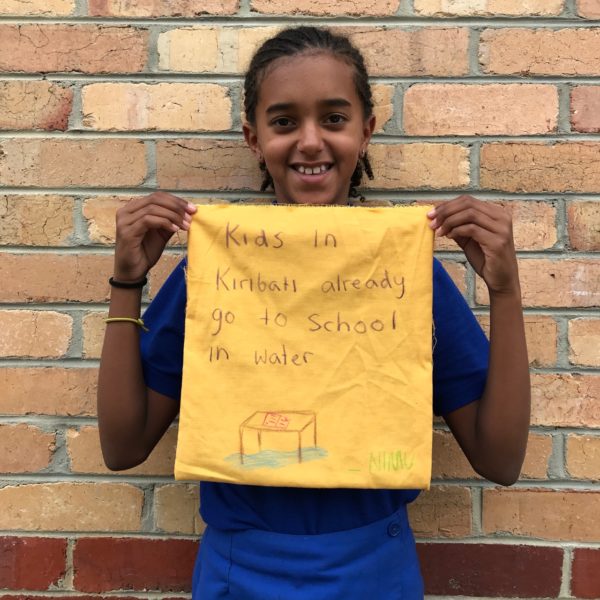 Kids in
Kiribati already
go to school
in water